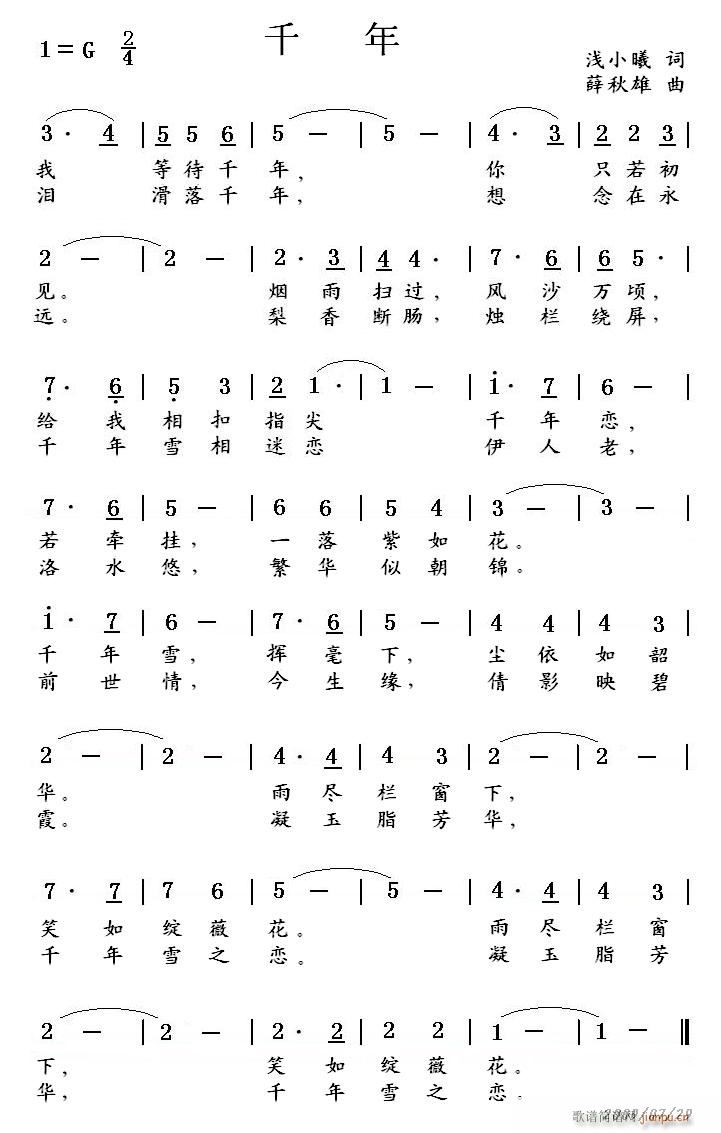 千 年
1=G 2/4
浅小曦 词
薛秋雄 曲
3· 4 | 5 5 6 | 5 - | 5 - | 4· 3 | 2 2 3 |
我 等待千 年, 你 只若初
泪 滑落千 年, 想 念在永
2 - | 2 - | 2· 3 | 4 4· | 7· 6 | 6 5· |
见。 烟 雨 扫过, 风 沙 万 顷,
远。 梨 香 断肠, 烛 栏 绕 屏,
7· 6 | 5 3 | 2 1· | 1 - | 1· 7 | 6 - |
给 我 相 扣 指 尖 千 年 恋,
千 年 雪 相 迷 恋 伊 人 老,
7· 6 | 5 - | 6 6 | 5 4 | 3 - | 3 - |
若 牵 挂, 一 落 紫 如 花。
洛 水 悠, 繁 华 似 朝 锦。
1· 7 | 6 - | 7· 6 | 5 - | 4 4 | 4 3 |
千 年 雪, 挥 毫 下, 尘 依 如 韶
前 世 情, 今 生 缘, 倩 影 映 碧
2 - | 2 - | 4· 4 | 4 3 | 2 - | 2 - |
华。 雨 尽 栏 窗 下,
霞。 凝 玉 脂 芳 华,
7· 7 | 7 6 | 5 - | 5 - | 4· 4 | 4 3 |
笑 如 绽 薇 花。 雨 尽 栏 窗
千 年 雪 之 恋。 凝 玉 脂 芳
2 - | 2 - | 2· 2 | 2 2 | 1 - | 1 - ‖
下, 笑 如 绽 薇 花。
华, 千 年 雪 之 恋。
jianpu.cn